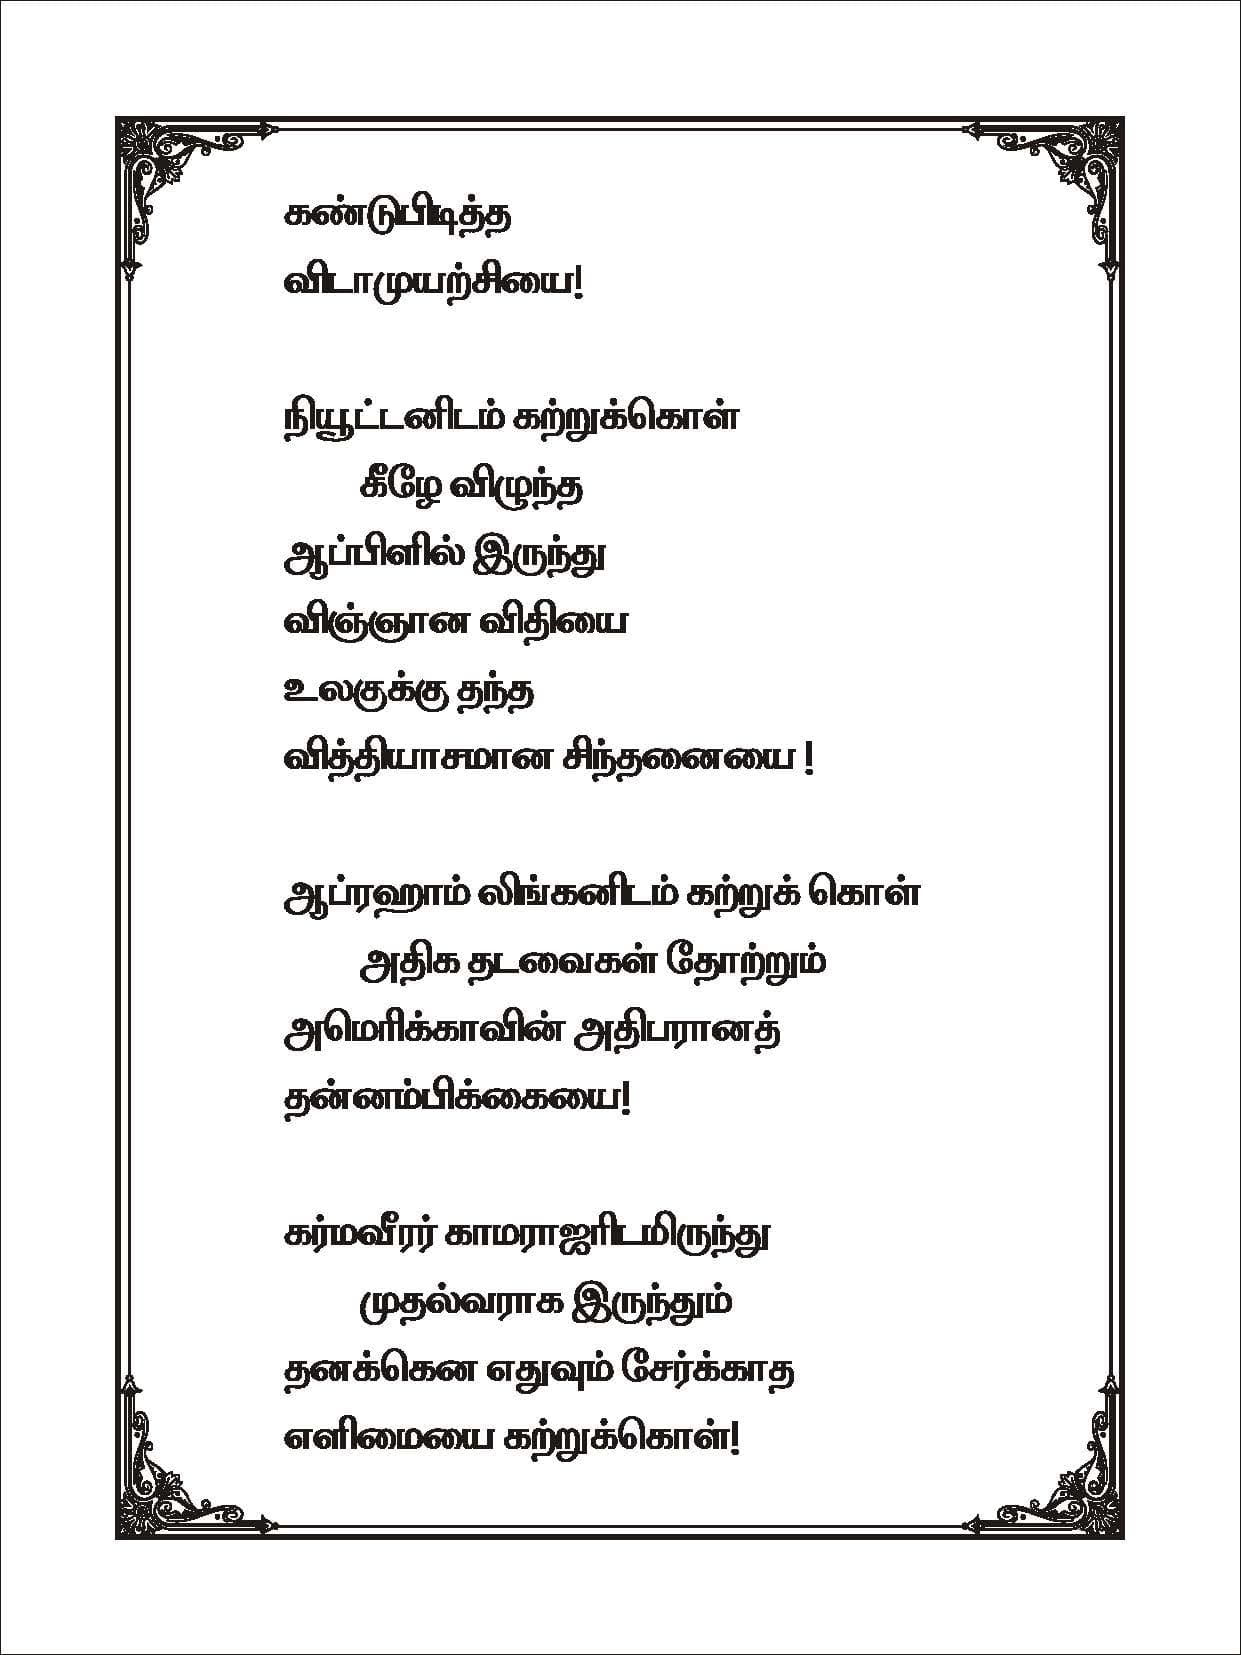 கண்டுபிடித்த
விடாமுயற்சியை!
நியூட்டனிடம் கற்றுக்கொள்
கீழே விழுந்த
ஆப்பிளில் இருந்து
விஞ்ஞான விதியை
உலகுக்கு தந்த
வித்தியாசமான சிந்தனையை !
ஆப்ரஹாம் லிங்கனிடம் கற்றுக் கொள்
அதிக தடவைகள் தோற்றும்
அமெரிக்காவின் அதிபரானத்
தன்னம்பிக்கையை!
கர்மவீரர் காமராஜரிடமிருந்து
முதல்வராக இருந்தும்
தனக்கென எதுவும் சேர்க்காத
எளிமையை கற்றுக்கொள்!